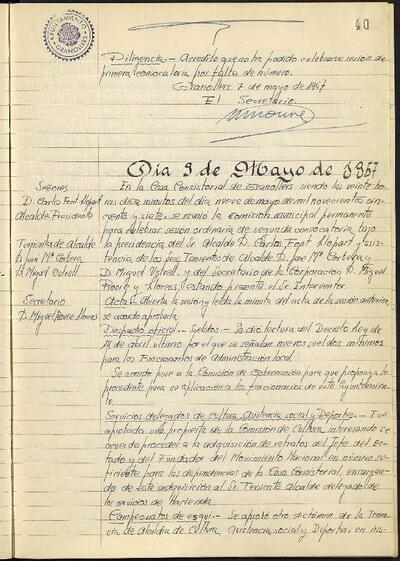 40
AYUNTAMIENTO
GRANOLLERS
Diligencia.- Acredito que no ha podido celebrarse sesión de
primera convocatoria por falta de número.
Granollers 7 de mayo de 1957
El Secretario
Día 9 de Mayo de 1957
Señores
D. Carlos Font Llopart
Alcalde Presidente
Tenientes de Alcalde
D. José Mª Corbera
D. Miguel Vetrell
Secretario
D. Miguel Llorens
En la Casa Consistorial de Granollers siendo las veinte ho
ras diez minutos del día nueve de mayo de mil novecientos cin
cuenta y siete, se reunió la comisión municipal permanente
para celebrar sesión ordinaria de segunda convocatoria, bajo
la presidencia del Sr. Alcalde D. Carlos Font Llopart y asis
tencia de los Sres. Tenientes de Alcalde D. José Mª Corbera y
D. Miguel Vetrell y del Secretario de la Corporación D. Miguel
y Llorens, estando presente el Sr. Interventor.
Acta.- Abierta la sesión y leida la minuta del acta de la sesión anterior,
se acordó aprobarla.
Despacho oficial.- Sueldos.- Se dió lectura del Decreto Ley de
12 de abril último por el que se señalan nuevos sueldos mínimos
para los Funcionarios de Administración local.
Se acordó pase a la Comisión de Gobernación para que proponga lo
procedente para su aplicación a los funcionarios de este Ayuntamien-
to.
Servicios delegados de Cultura, Asistencia social y Deportes.- Fué
aprobada una propuesta de la Comisión de Cultura, interesando se
acuerde proceder a la adquisición de retratos del Jefe del Es-
tado y del Fundador del Movimiento Nacional en número su-
ficiente para las dependencias de la Casa Consistorial, encargan-
do de esta adquisición al Sr. Teniente Alcalde delegado de
los servicios de Hacienda.
Campeonatos de esquí.- Se aprobó otro dictamen de la Tenen-
cia de Alcaldía de Cultura, Asistencia social y Deportes, en